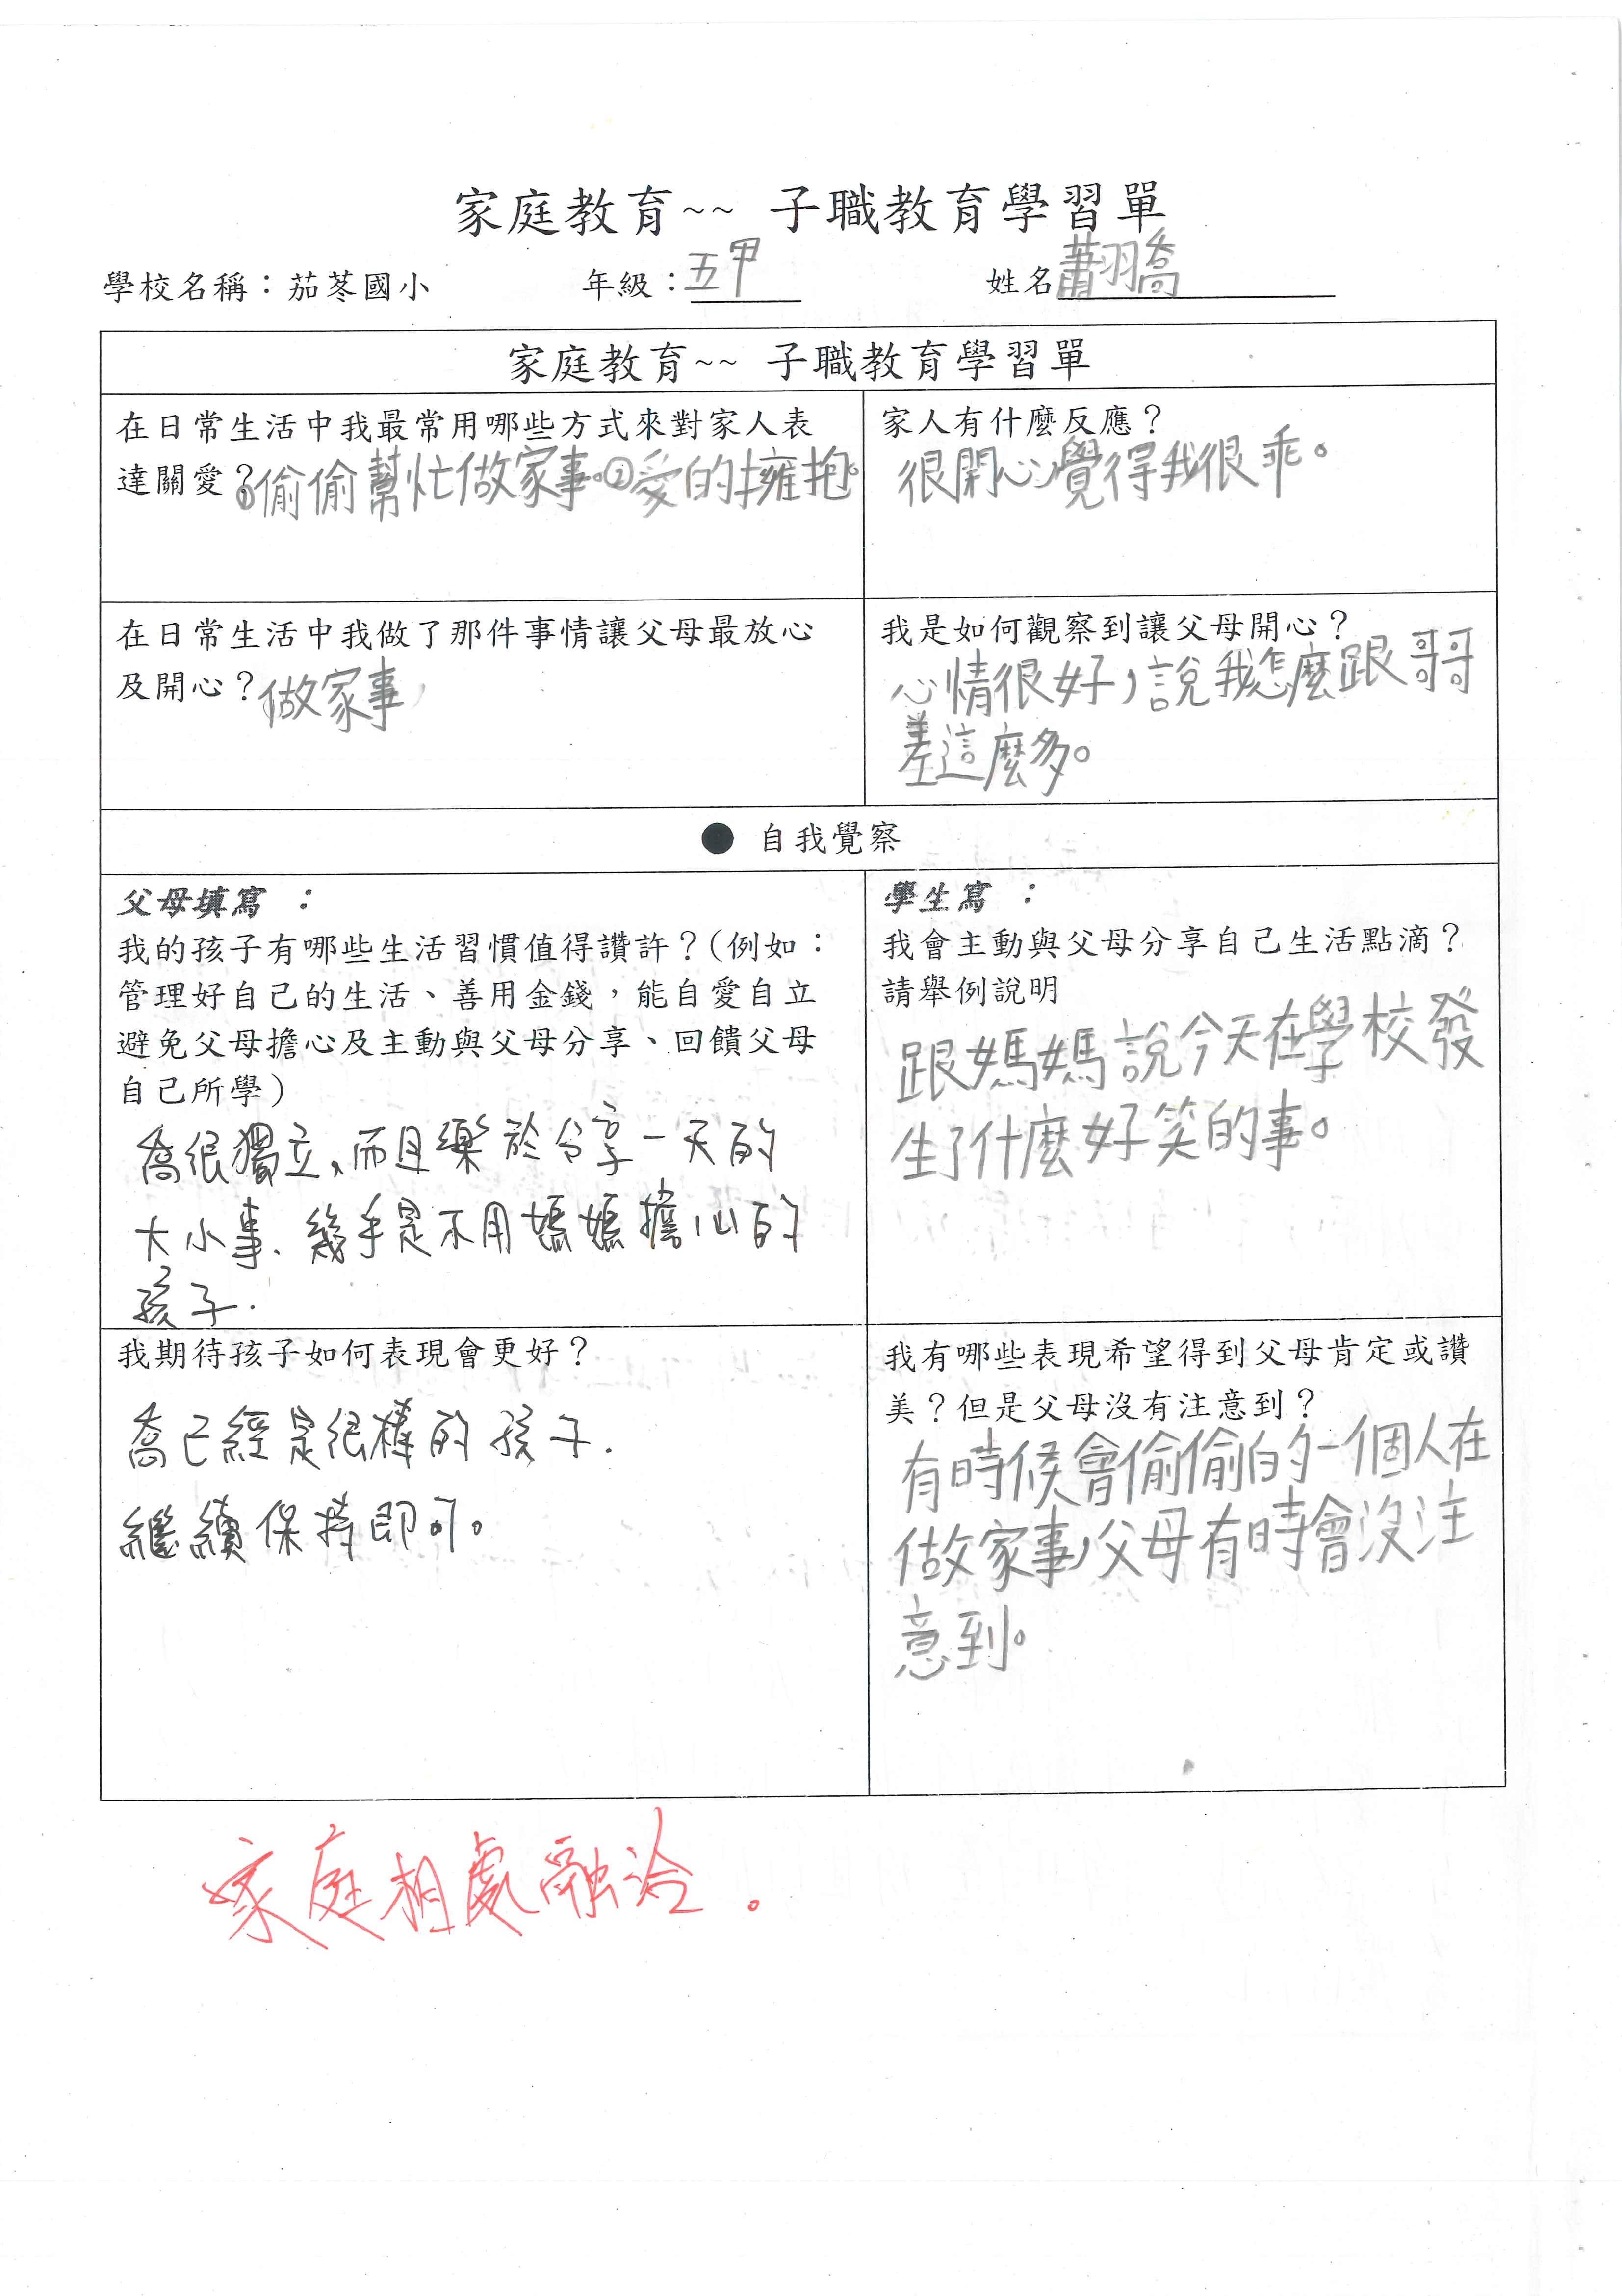 家庭教育~~ 子職教育學習單
學校名稱：茄苳國小 年級：五甲 姓名蕭羽喬
家庭教育~~ 子職教育學習單
在日常生活中我最常用哪些方式來對家人表
達關愛？①偷偷幫忙做家事。②愛的擁抱。
家人有什麼反應？
很開心覺得我很乖。
在日常生活中我做了那件事情讓父母最放心
及開心？做家事
我是如何觀察到讓父母開心？
心情很好，說我怎麼跟哥哥
差這麼多。
● 自我覺察
父母填寫 ：
我的孩子有哪些生活習慣值得讚許？(例如：
管理好自己的生活、善用金錢，能自愛自立
避免父母擔心及主動與父母分享、回饋父母
自己所學)
喬很獨立、而且樂於分享一天的
大小事.幾乎是不用媽媽擔心的
孩子.
學生寫 ：
我會主動與父母分享自己生活點滴？
請舉例說明
跟媽媽說今天在學校發
生了什麼好笑的事。
我期待孩子如何表現會更好？
喬已經是很棒的孩子.
繼續保持即可。
我有哪些表現希望得到父母肯定或讚
美？但是父母沒有注意到？
有時候會偷偷的一個人在
做家事，父母有時會沒注
意到。
家庭相處融洽。